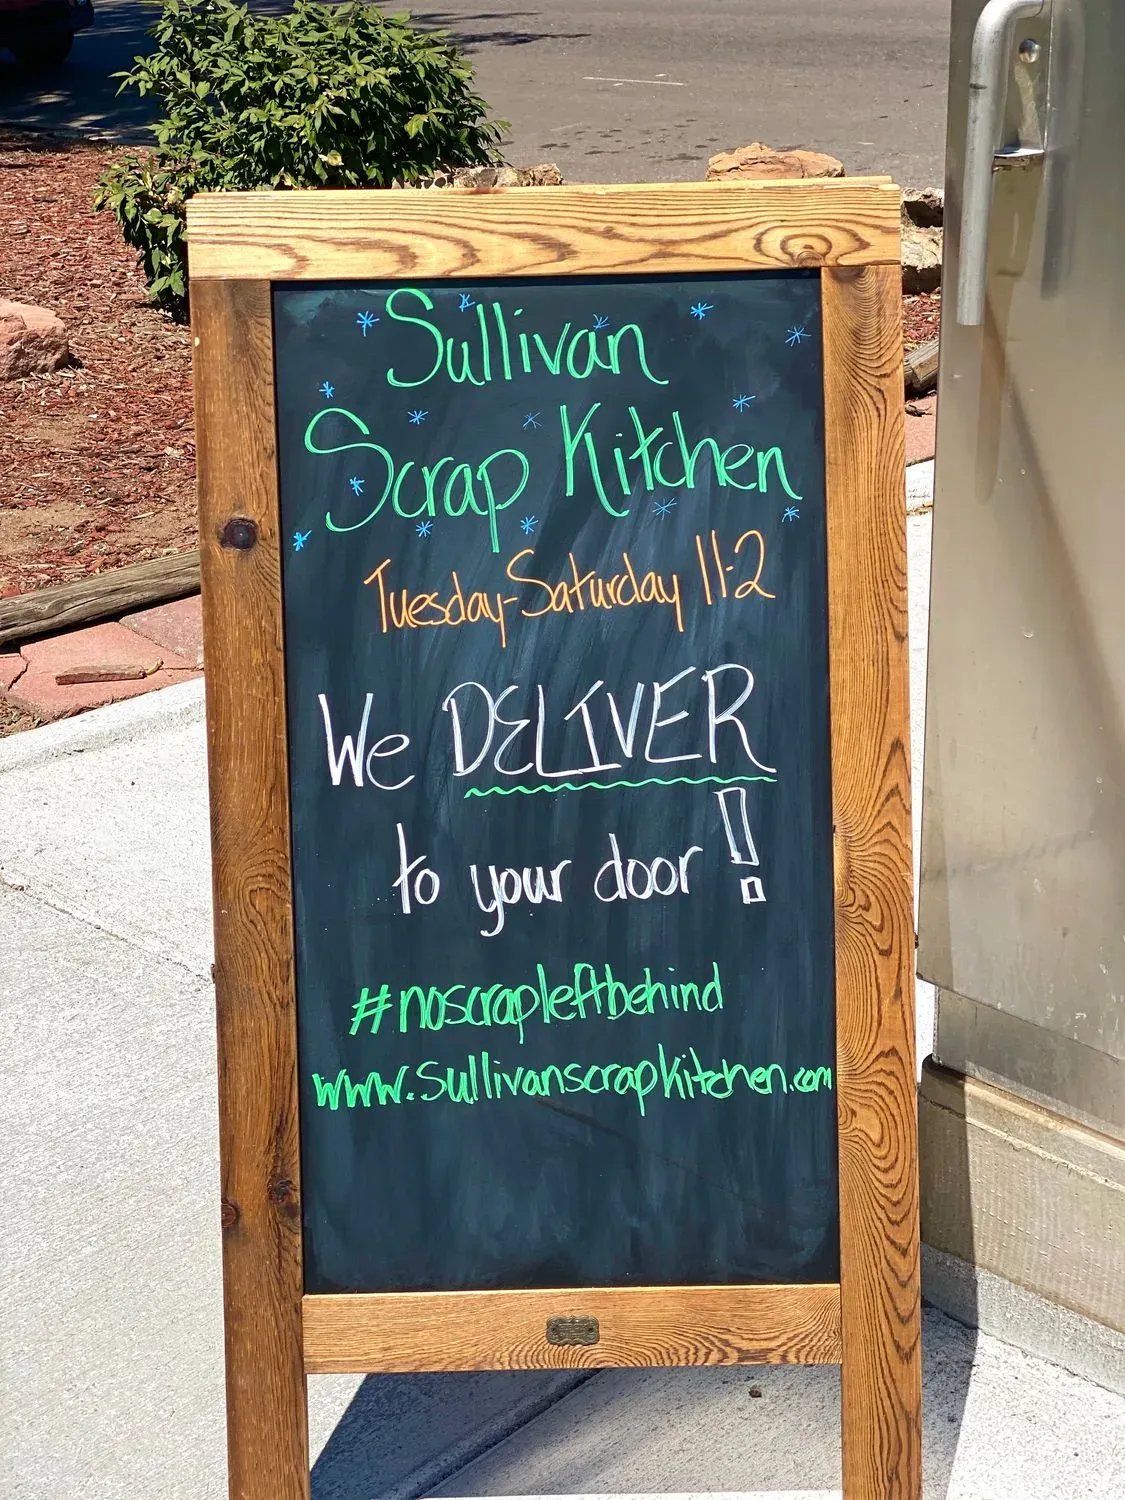 Sullivan
Scrap Kitchen
Tuesday-Saturday 11-2
We DELIVER
to your door!
#noscrapleftbehind
www.sullivanscrapkitchen.com